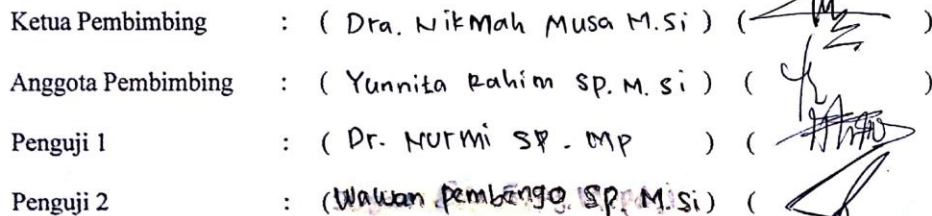 Ketua Pembimbing : ( Dra. Nikmah Musa M.Si ) ( )
Anggota Pembimbing : ( Yunnita Rahim SP. M. Si ) ( )
Penguji 1 : ( Dr. Nurmi SP . MP ) ( 
Penguji 2 : (Wawan Pembengo SP. M.Si) (